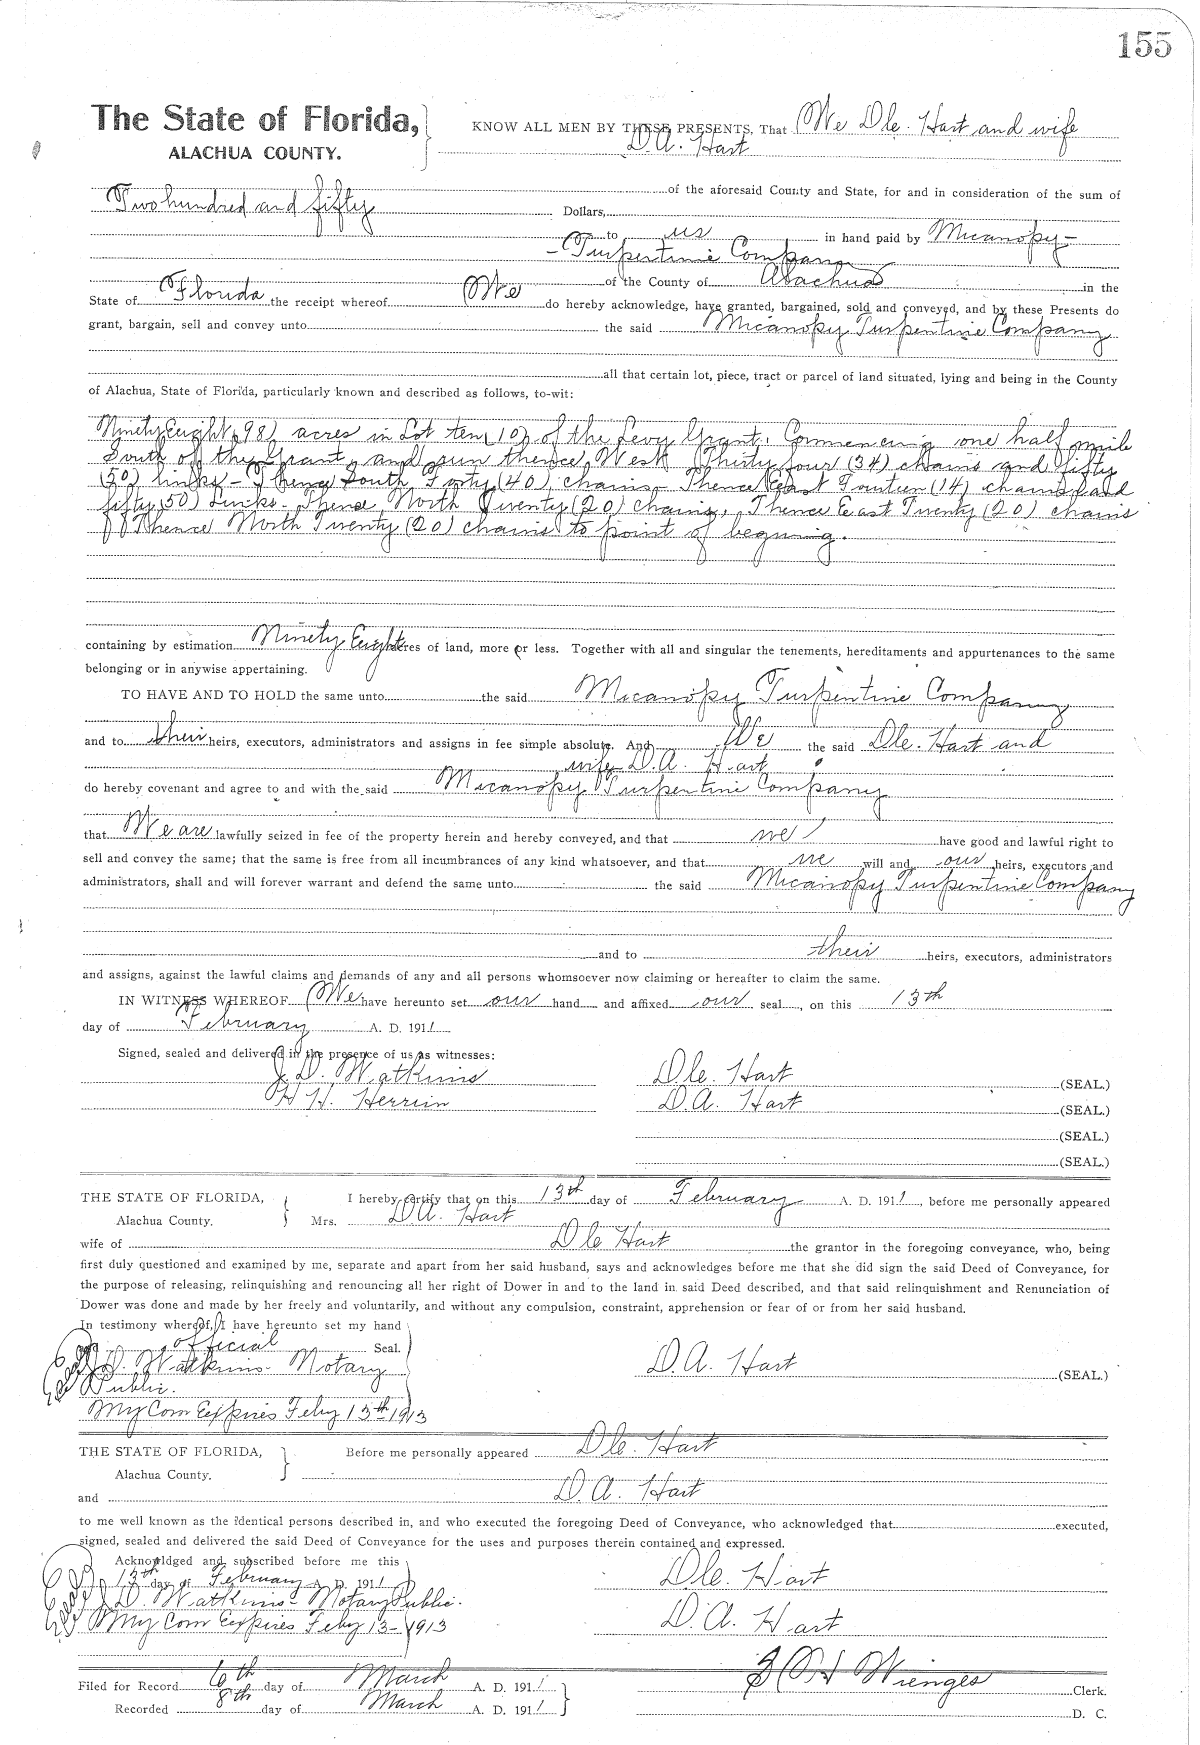 155
The State of Florida,
ALACHUA COUNTY.
KNOW ALL MEN BY THESE PRESENTS, That We Dle. Hart and wife
D.A. Hart
of the aforesaid County and State, for and in consideration of the sum of
Two hundred and fifty Dollars,
to us in hand paid by Micanopy-
-Turpentine Company
of the County of Alachua in the
State of Florida the receipt whereof We do hereby acknowledge, have granted, bargained, sold and conveyed, and by these Presents do
grant, bargain, sell and convey unto the said Micanopy Turpentine Company
all that certain lot, piece, tract or parcel of land situated, lying and being in the County
of Alachua, State of Florida, particularly known and described as follows, to-wit:
Ninety Eight (98) acres in Lot ten (10) of the Levy Grant. Commencing one half mile
South of the Grant, and run thence West Thirty four (34) chains and fifty
(50) links - Thence South Forty (40) chains - Thence East Fourteen (14) chains and
fifty (50) Links. Thence North Twenty (20) chains, Thence East Twenty (20) chains
Thence North Twenty (20) chains to point of begining.
containing by estimation Ninety Eight acres of land, more or less. Together with all and singular the tenements, hereditaments and appurtenances to the same
belonging or in anywise appertaining.
TO HAVE AND TO HOLD the same unto the said Micanopy Turpentine Company
and to their heirs, executors, administrators and assigns in fee simple absolute. And We the said Dle. Hart and
wife D.A. Hart
do hereby covenant and agree to and with the said Micanopy Turpentine Company
that We are lawfully seized in fee of the property herein and hereby conveyed, and that we have good and lawful right to
sell and convey the same; that the same is free from all incumbrances of any kind whatsoever, and that we will and our heirs, executors and
administrators, shall and will forever warrant and defend the same unto the said Micanopy Turpentine Company
and to their heirs, executors, administrators
and assigns, against the lawful claims and demands of any and all persons whomsoever now claiming or hereafter to claim the same.
IN WITNESS WHEREOF We have hereunto set our hand and affixed our seal, on this 13th
day of February A. D. 1911
Signed, sealed and delivered in the presence of us as witnesses:
J. D. Watkins Dle. Hart (SEAL.)
H H. Herrin D.A. Hart (SEAL.)
(SEAL.)
(SEAL.)
THE STATE OF FLORIDA, I hereby certify that on this 13th day of February A. D. 1911, before me personally appeared
Alachua County. Mrs. D.A. Hart
wife of Dle Hart the grantor in the foregoing conveyance, who, being
first duly questioned and examined by me, separate and apart from her said husband, says and acknowledges before me that she did sign the said Deed of Conveyance, for
the purpose of releasing, relinquishing and renouncing all her right of Dower in and to the land in said Deed described, and that said relinquishment and Renunciation of
Dower was done and made by her freely and voluntarily, and without any compulsion, constraint, apprehension or fear of or from her said husband.
In testimony whereof, I have hereunto set my hand
official Seal.
J.D. Watkins - Notary D.A. Hart (SEAL.)
Public.
My Com Expires Feby 13th 1913
THE STATE OF FLORIDA, Before me personally appeared Dle. Hart
Alachua County.
and D.A. Hart
to me well known as the identical persons described in, and who executed the foregoing Deed of Conveyance, who acknowledged that executed,
signed, sealed and delivered the said Deed of Conveyance for the uses and purposes therein contained and expressed.
Acknowldged and subscribed before me this
13th day of February A. D. 1911 Dle. Hart
J. D. Watkins - Notary Public.
My Com Expires Feby 13- 1913 D.A. Hart
Filed for Record 6th day of March A. D. 1911 Wienges Clerk.
Recorded 8th day of March A. D. 1911 D. C.